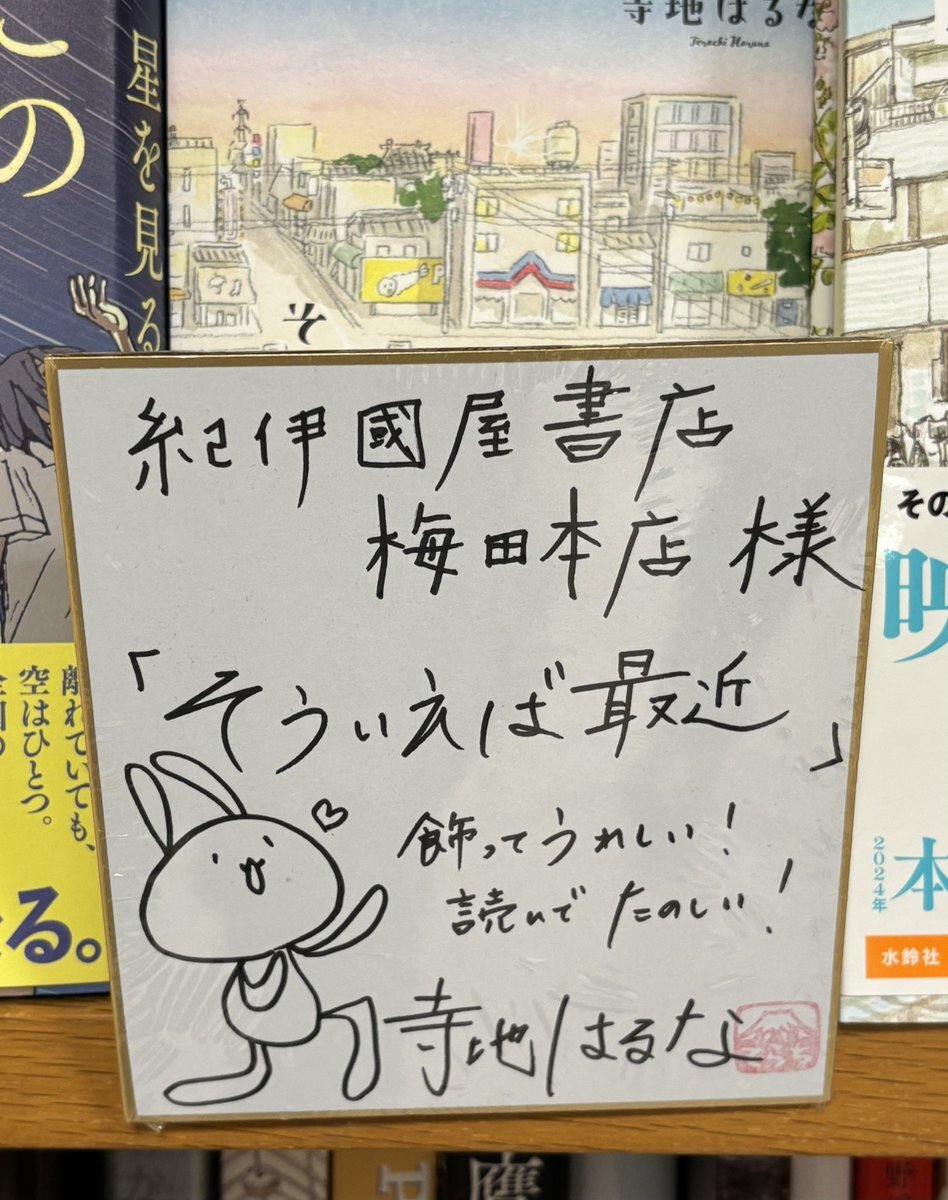 寺地はるな
Terachi Haruna
星を見る
の
そ
紀伊國屋書店
梅田本店 様
「そういえば最近」
飾ってうれしい！
読んで たのしい！
寺地はるな
離れていても、
空はひとつ。
る。
その
映
本
2024年
水鈴社